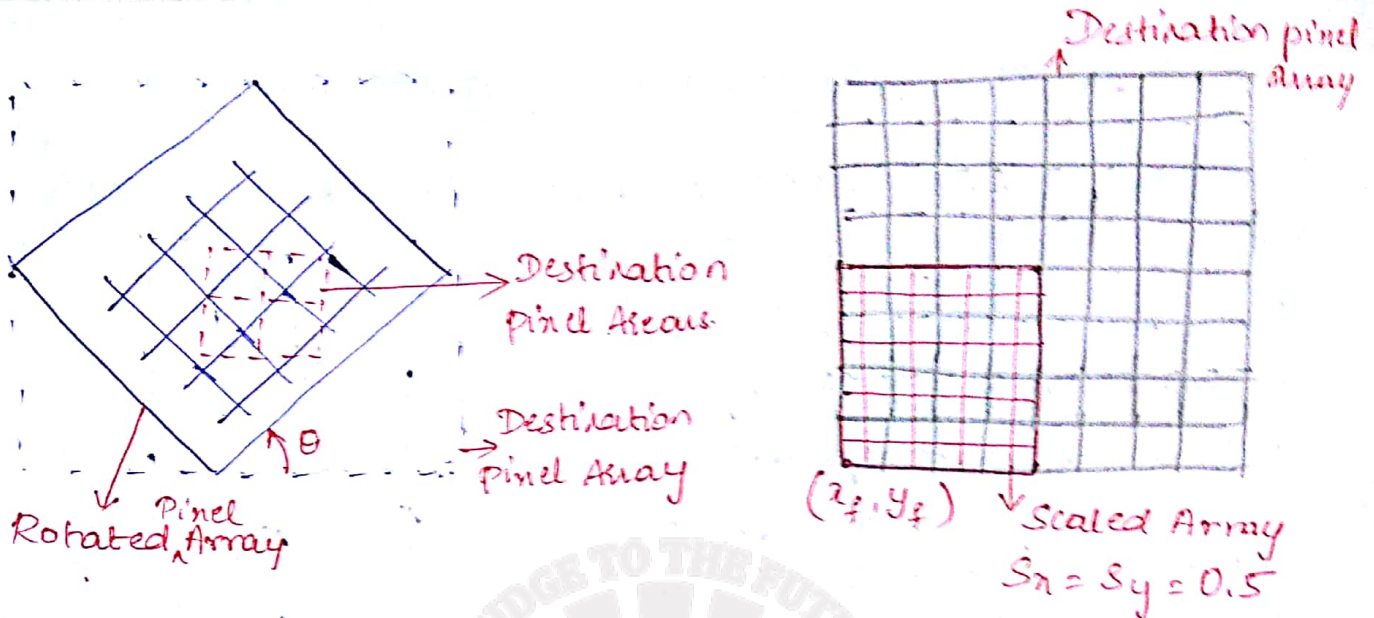 Destination
Pixel Areas.
Destination
Pixel Array
θ
Rotated Pixel Array
Destination pixel
Array
(x_f, y_f)
Scaled Array
Sx = Sy = 0.5